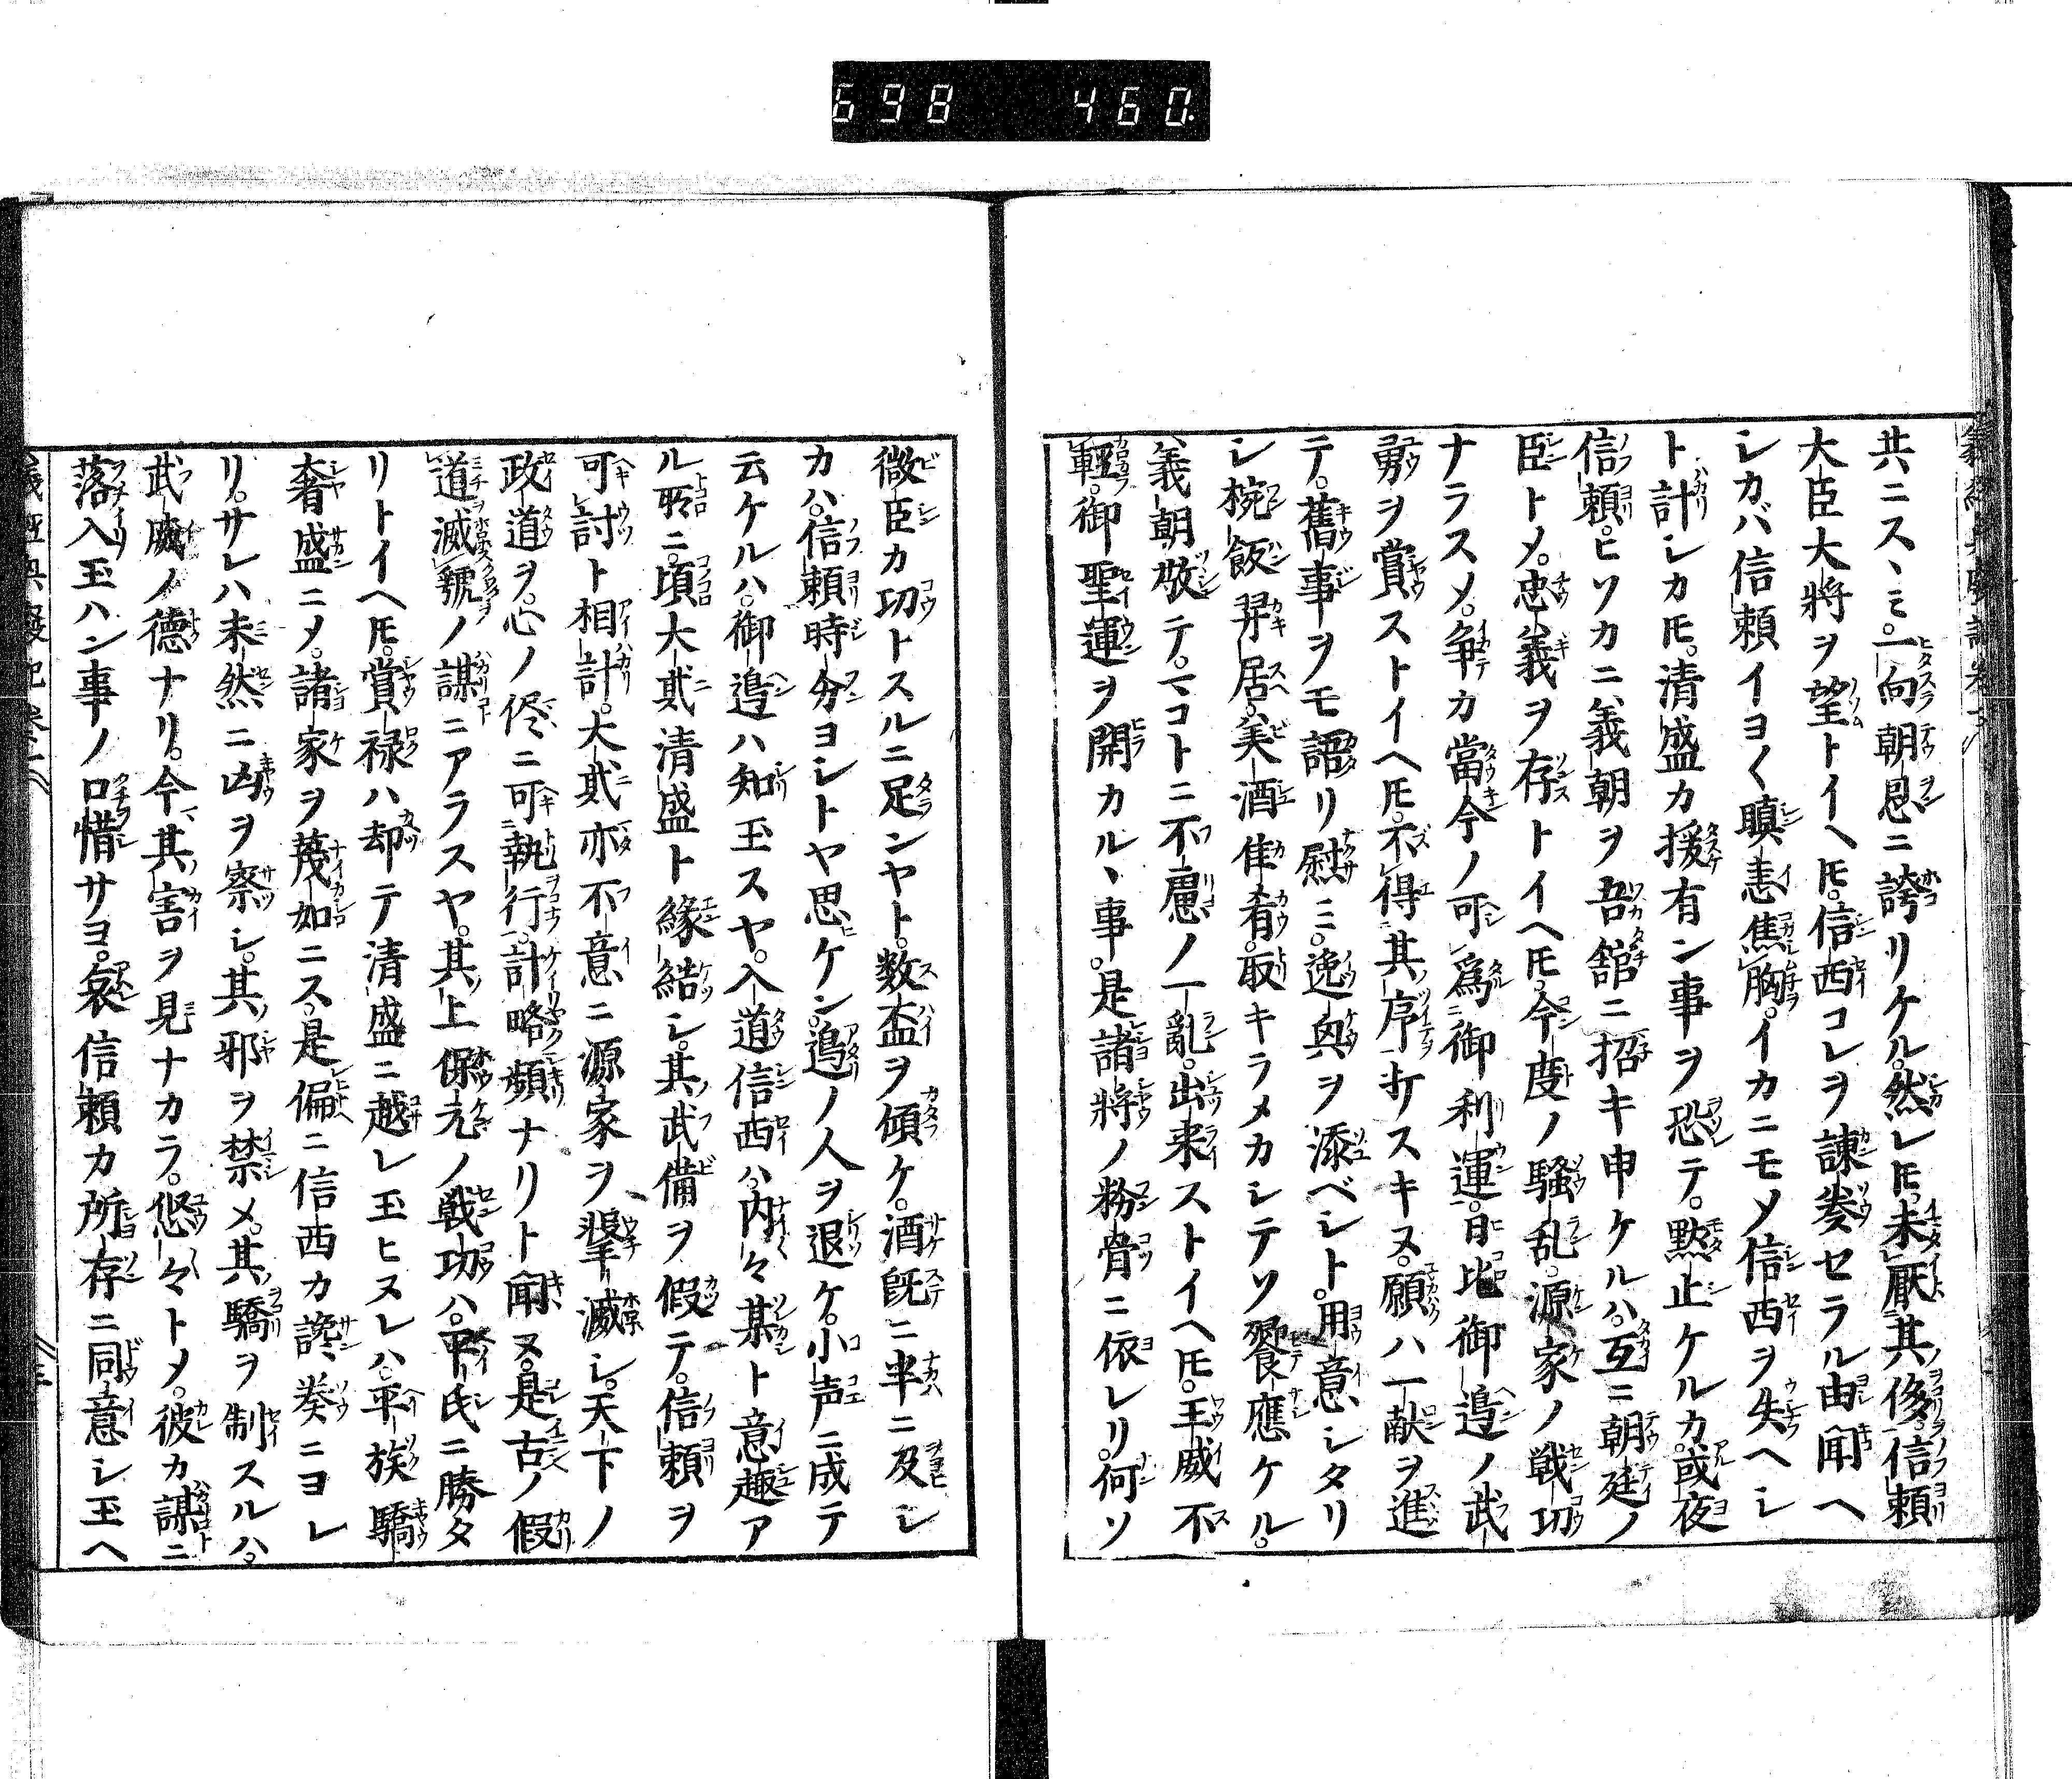 698 460
共ニスヽミ。一向朝恩ニ誇リケル。然レ𪜈。未厭其侈。信頼
大臣大將ヲ望トイヘ𪜈。信西コレヲ諫奏セラル由聞ヘ
シカバ信頼イヨ〱瞋恚焦胸。イカニモメ信西ヲ失ヘシ
ト計シカ𪜈。清盛カ援有ン事ヲ恐テ。黙止ケルカ。或夜
信頼。ヒソカニ義朝ヲ吾舘ニ招キ申ケルハ。互ニ朝廷ノ
臣トメ。忠義ヲ存トイヘ𪜈。今度ノ騒乱。源家ノ戦功
ナラスメ。争カ當今ノ可為御利運。日比御邉ノ武
勇ヲ賞ストイヘ𪜈。不得其序打スキヌ。願ハ一献ヲ進
テ。舊事ヲモ語リ慰ミ。逸興ヲ添ベシト。用意シタリ
シ椀飯舁居。美酒佳肴。取キラメカシテソ饗應ケル。
義朝敬テ。マコトニ不慮ノ一亂。出来ストイヘ𪜈。王威不
輕。御聖運ヲ開カルヽ事。是諸將ノ粉骨ニ依レリ。何ソ
微臣カ功トスルニ足ンヤト。数盃ヲ傾ケ。酒既ニ半ニ及シ
カハ。信頼時分ヨシトヤ思ケン。邉ノ人ヲ退ケ。小声ニ成テ
云ケルハ。御邉ハ知玉スヤ。入道信西ハ。内々某ト意趣ア
ル所ニ。頃大貳清盛ト縁結シ。其武備ヲ假テ。信頼ヲ
可討ト相計。大貳亦不意ニ源家ヲ撃滅シ。天下ノ
政道ヲ。心ノ侭ニ可執行。計略頻ナリト聞ヌ。是古ノ假
道滅虢ノ謀ニアラスヤ。其上保元ノ戦功ハ。平氏ニ勝タ
リトイヘ𪜈。賞禄ハ却テ清盛ニ越レ玉ヒヌレハ。平族驕
奢盛ニメ。諸家ヲ蔑如ニス。是偏ニ信西カ讒奏ニヨレ
リ。サレハ未然ニ凶ヲ察シ。其邪ヲ禁メ。其驕ヲ制スルハ。
武威ノ德ナリ。今其害ヲ見ナカラ。悠々トメ。彼カ謀ニ
落入玉ハン事ノ口惜サヨ。哀信頼カ所存ニ同意シ玉ヘ